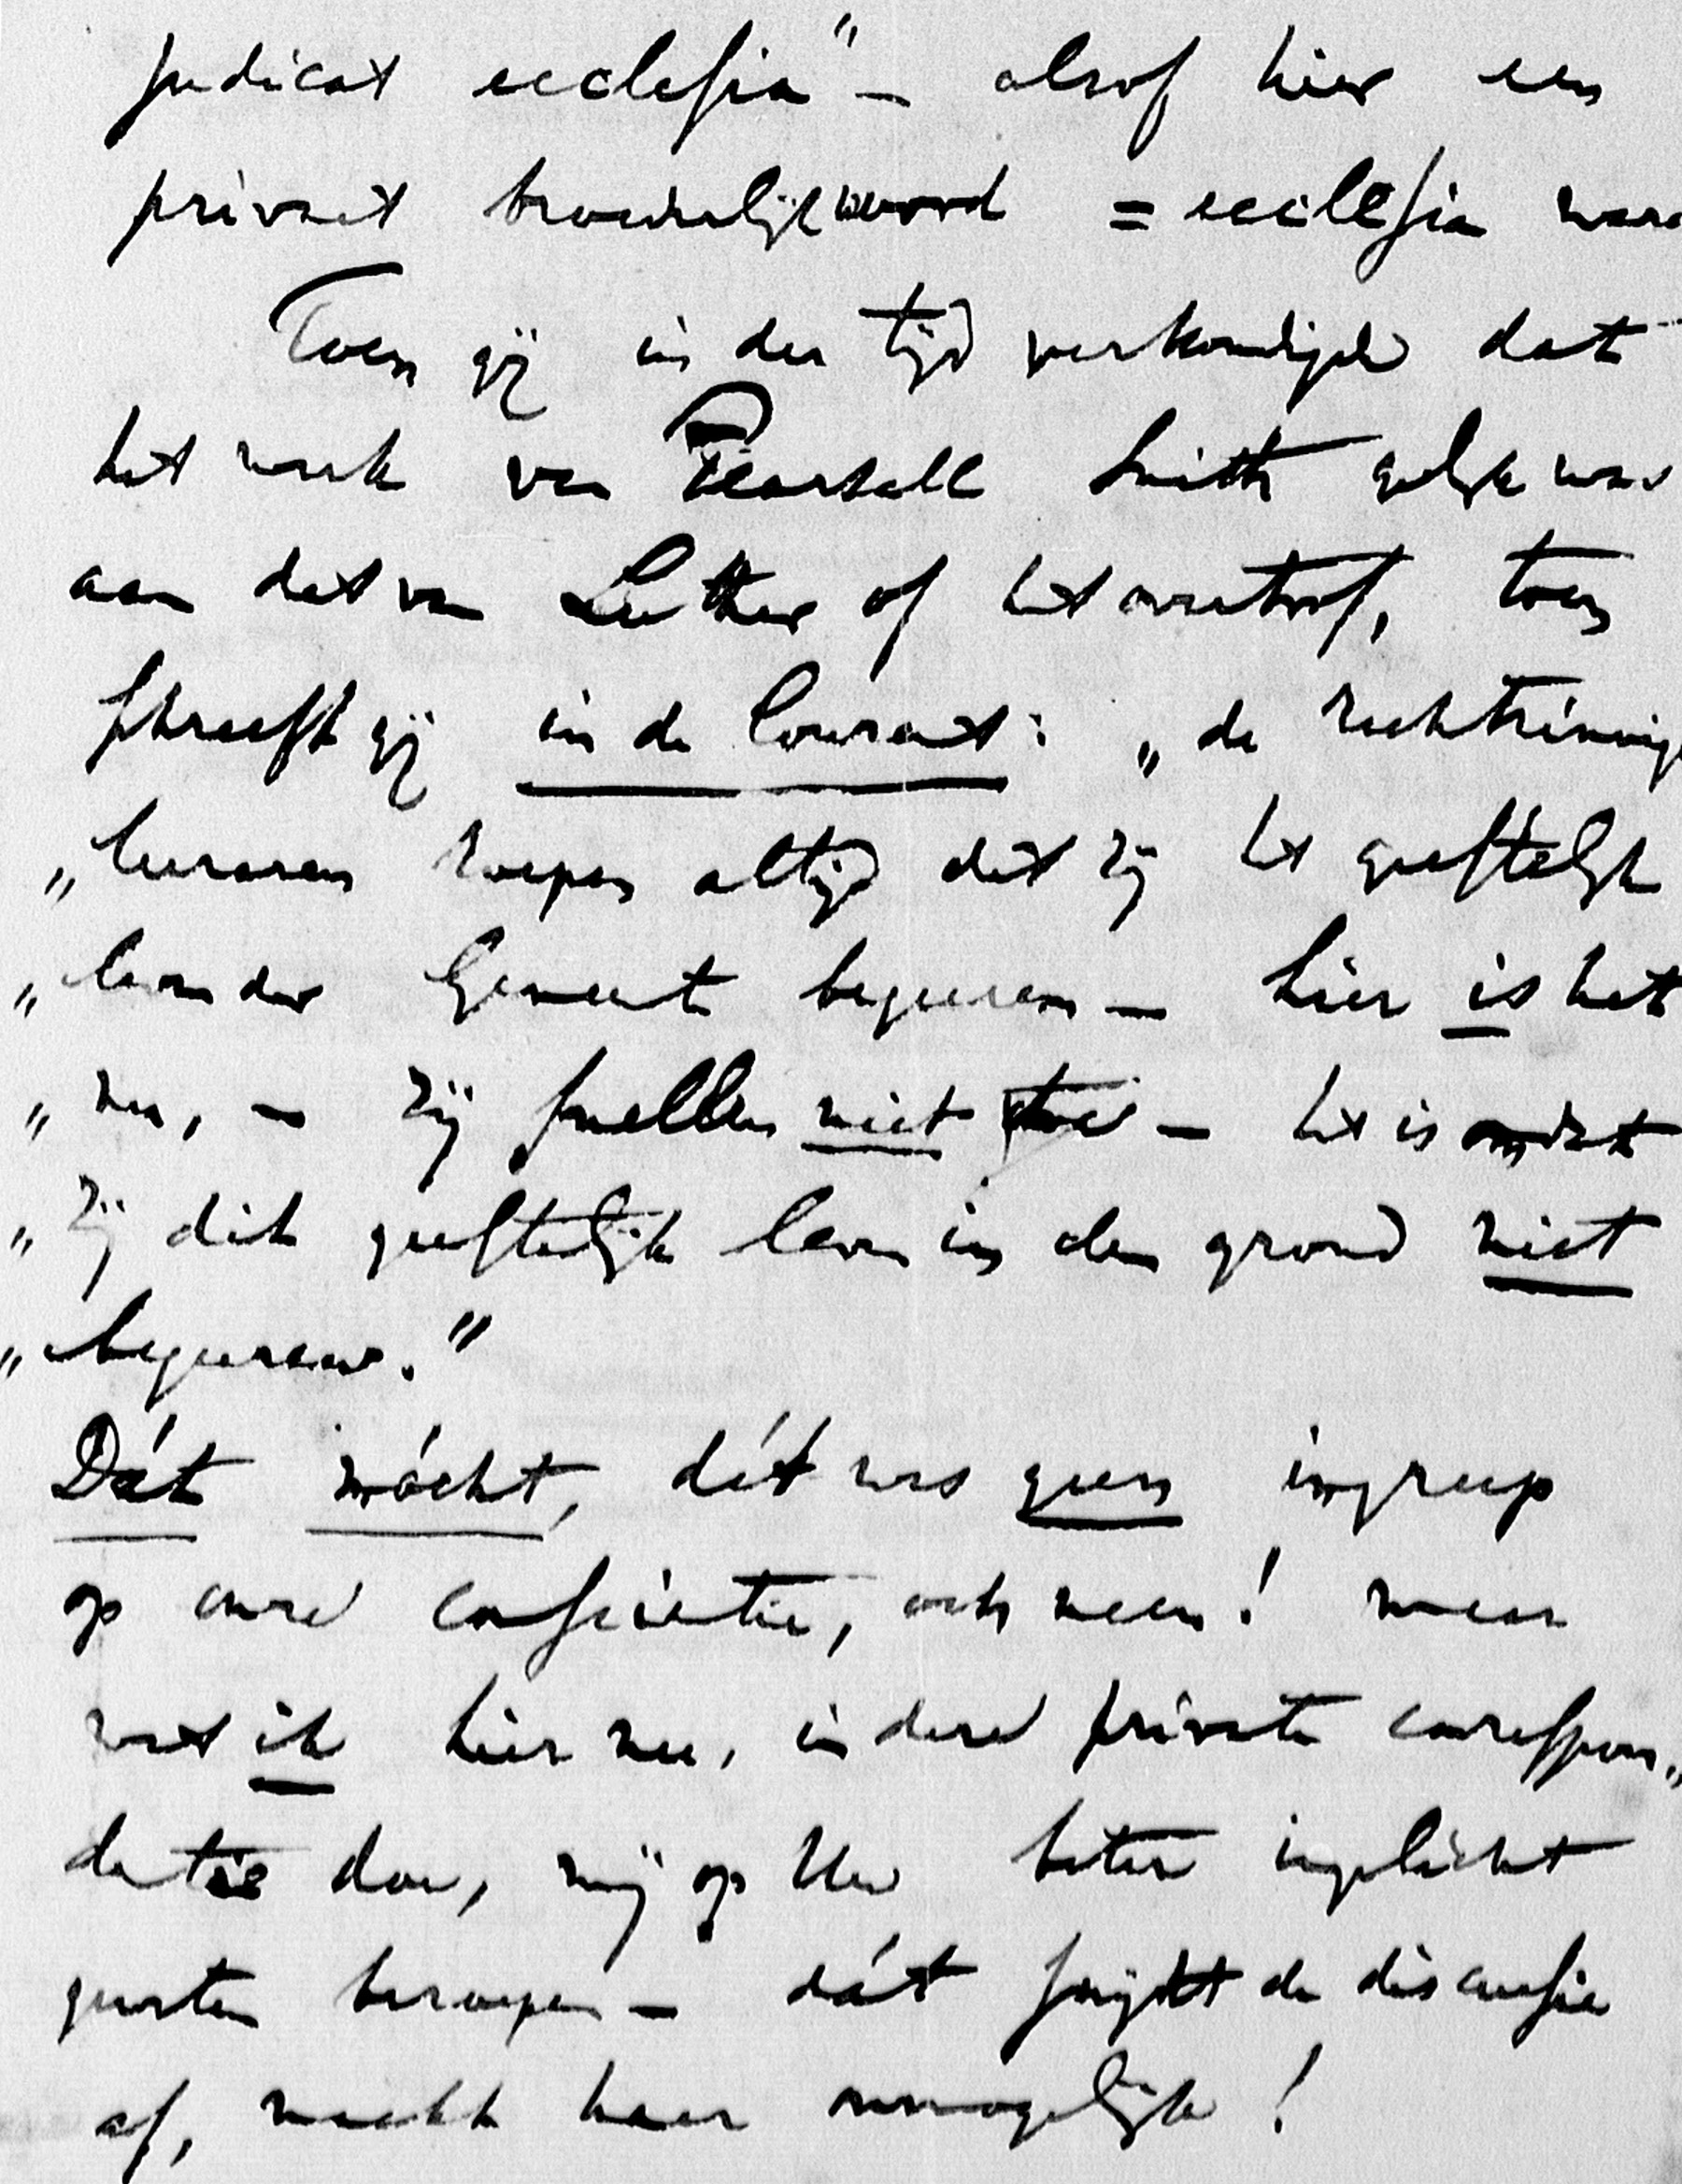 judicat ecclesia" — alsof hier een
privaat broederlijk woord = ecclesia ware
Toen gij in der tijd verkondigde dat
het werk van Pearsall Smith gelijk was
aan dat van Luther of het overtrof, toen
schreeft gij in de Courant: „de rechtzinnige
„leeraren roepen altijd dat zij het geestelijk
„leven der Gemeente begeeren — hier is het
„nu, — zij snellen niet toe — het is omdat
„zij dit geestelijk leven in den grond niet
„begeeren."
Dát mócht, dát was geen ingreep
op onze conscientie, och neen! maar
wat ik hier nu, in deze private correspon„
dentie doe, mij op Uw beter ingelicht
geweten beroepen — dát snijdt de discussie
af, maakt haar onmogelijk!